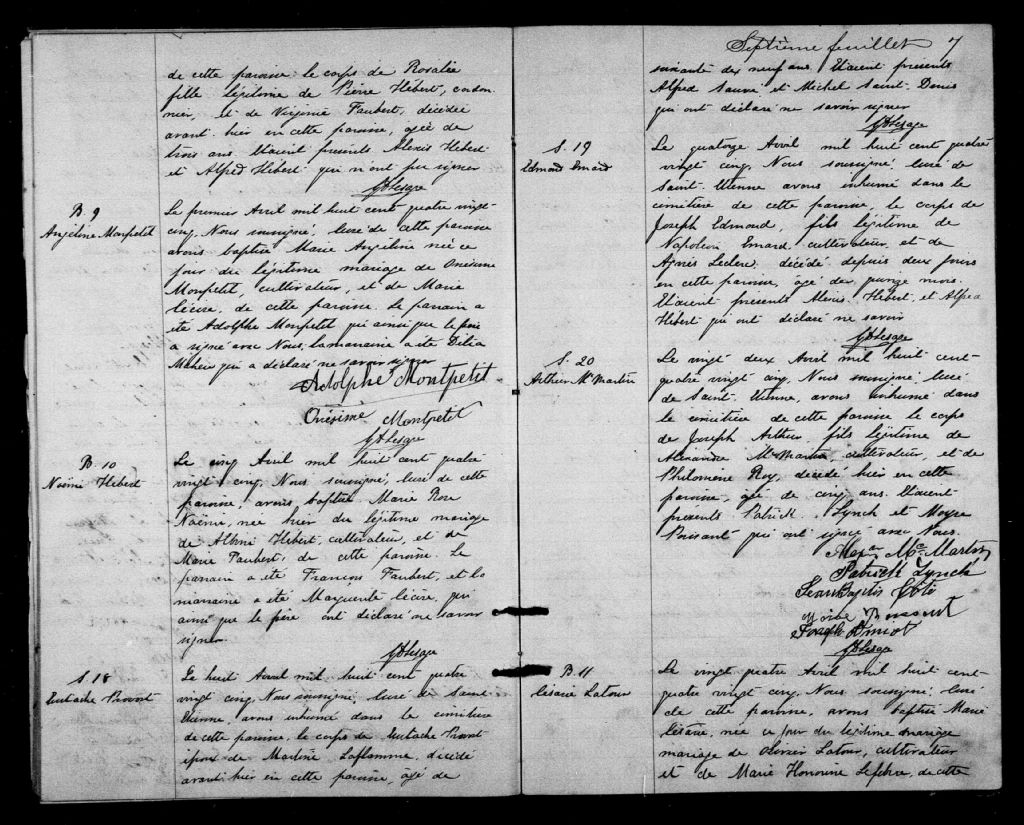 de cette paroisse le corps de Rosalie
fille légitime de Pierre Hébert, cordon
nier, et de Virginie Faubert, décédée
avant hier en cette paroisse, agée de
trois ans. Etaient présents Alexis Hebert
et Alfred Hébert qui n'ont pu signer
B. 9
Angéline Monpetit
Le premier Avril mil huit cent quatre vingt-
cinq, Nous soussigné, curé de cette paroisse
avons baptisé Marie Angéline née ce
jour du légitime mariage de Onésime
Monpetit, cultivateur, et de Marie
de cette paroisse. Le parrain a
été Adolphe Monpetit qui ainsi que le père
a signé avec Nous, la marraine a été Délia
Maheu qui a déclaré ne savoir signer
Adolphe Montpetit
Onésime Montpetit
B. 10
Noëmi Hebert
Le cinq Avril mil huit cent quatre
vingt cinq, Nous soussigné, curé de cette
paroisse, avons baptisé Marie Rose
Noëmi, née hier du légitime mariage
de Hébert, cultivateur, et de
Marie Faubert, de cette paroisse. Le
parrain a été François Faubert, et la
marraine a été Marguerite qui
ainsi que le père ont déclaré ne savoir
signer
S. 18
Eustache Provost
Le huit Avril mil huit cent quatre
vingt cinq, Nous soussigné, curé de Saint
Etienne, avons inhumé dans le cimitière
de cette paroisse, le corps de Eustache Provost
époux de Martine Laflamme, décédé
avant hier en cette paroisse, agé de
Septième feuillet 7
soixante dix neuf ans. Etaient présents
Alfred Sauvé et Michel Saint-Denis
qui ont déclaré ne savoir signer
S. 19
Edmond Emard
Le quatorze Avril mil huit cent quatre
vingt cinq, Nous soussigné, curé de
Saint-Etienne avons inhumé dans le
cimitière de cette paroisse, le corps de
Joseph Edmond, fils légitime de
Napoléon Emard, cultivateur, et de
Agnès Leclerc, décédé depuis deux jours
en cette paroisse, agé de quinze mois.
Etaient présents Alexis Hébert, et Alfred
Hébert qui ont déclaré ne savoir
S. 20
Arthur Mc Martin
Le vingt deux Avril mil huit cent-
quatre vingt cinq, Nous soussigné, curé
de Saint-Etienne, avons inhumé dans
le cimitière de cette paroisse le corps
de Joseph Arthur, fils légitime de
Alexandre McMartin cultivateur, et de
Philomène Roy, décédé hier en cette
paroisse, agé de cinq ans. Etaient
présents Patrick Lynch et Moyse
Poissant qui ont signé avec Nous.
Alexr. McMartin
Patrick Lynch
Jean Baptis Coté
Joseph
B. 11
Césarie Latour
Le vingt quatre Avril mil huit cent-
quatre vingt cinq, Nous soussigné, curé
de cette paroisse, avons baptisé Marie
Césarie, née ce jour du légitime mariage
mariage de Olivier Latour, cultivateur
et de Marie Honorine Lefebvre, de cette